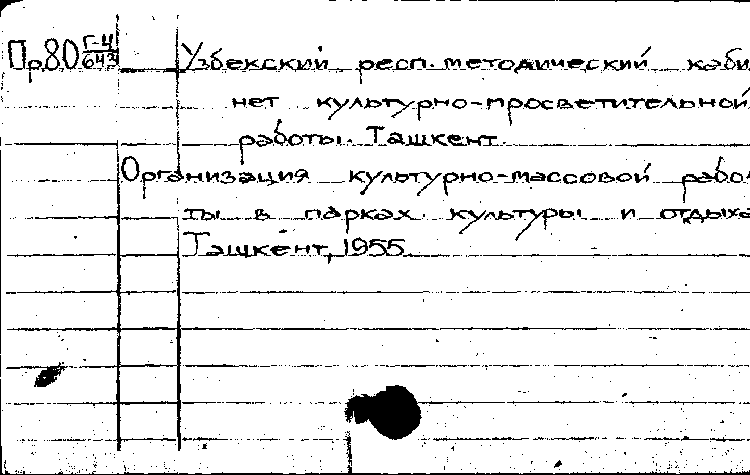 Пр80 Г-4/643 Узбекский респ. методический каби
нет культурно-просветительной
работы. Ташкент.
Организация культурно-массовой рабо
ты в парках культуры и отдыха
Ташкент, 1955